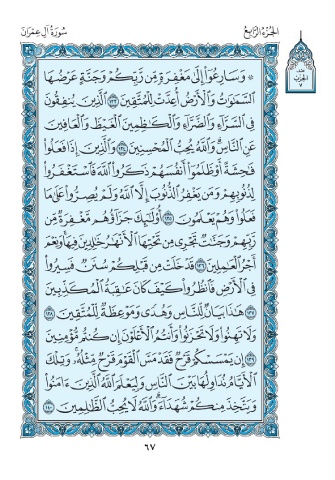 الجزء الرابع
سورة آل عمران
الحزب
٧
۞ وَسَارِعُوٓا۟ إِلَىٰ مَغْفِرَةٍ مِّن رَّبِّكُمْ وَجَنَّةٍ عَرْضُهَا
ٱلسَّمَٰوَٰتُ وَٱلْأَرْضُ أُعِدَّتْ لِلْمُتَّقِينَ ١٣٣ ٱلَّذِينَ يُنفِقُونَ
فِى ٱلسَّرَّآءِ وَٱلضَّرَّآءِ وَٱلْكَٰظِمِينَ ٱلْغَيْظَ وَٱلْعَافِينَ
عَنِ ٱلنَّاسِ وَٱللَّهُ يُحِبُّ ٱلْمُحْسِنِينَ ١٣٤ وَٱلَّذِينَ إِذَا فَعَلُوا۟
فَٰحِشَةً أَوْ ظَلَمُوٓا۟ أَنفُسَهُمْ ذَكَرُوا۟ ٱللَّهَ فَٱسْتَغْفَرُوا۟
لِذُنُوبِهِمْ وَمَن يَغْفِرُ ٱلذُّنُوبَ إِلَّا ٱللَّهُ وَلَمْ يُصِرُّوا۟ عَلَىٰ مَا
فَعَلُوا۟ وَهُمْ يَعْلَمُونَ ١٣٥ أُو۟لَٰٓئِكَ جَزَآؤُهُم مَّغْفِرَةٌ مِّن
رَّبِّهِمْ وَجَنَّٰتٌ تَجْرِى مِن تَحْتِهَا ٱلْأَنْهَٰرُ خَٰلِدِينَ فِيهَا وَنِعْمَ
أَجْرُ ٱلْعَٰمِلِينَ ١٣٦ قَدْ خَلَتْ مِن قَبْلِكُمْ سُنَنٌ فَسِيرُوا۟
فِى ٱلْأَرْضِ فَٱنظُرُوا۟ كَيْفَ كَانَ عَٰقِبَةُ ٱلْمُكَذِّبِينَ
١٣٧ هَٰذَا بَيَانٌ لِّلنَّاسِ وَهُدًى وَمَوْعِظَةٌ لِّلْمُتَّقِينَ ١٣٨
وَلَا تَهِنُوا۟ وَلَا تَحْزَنُوا۟ وَأَنتُمُ ٱلْأَعْلَوْنَ إِن كُنتُم مُّؤْمِنِينَ
١٣٩ إِن يَمْسَسْكُمْ قَرْحٌ فَقَدْ مَسَّ ٱلْقَوْمَ قَرْحٌ مِّثْلُهُۥ وَتِلْكَ
ٱلْأَيَّامُ نُدَاوِلُهَا بَيْنَ ٱلنَّاسِ وَلِيَعْلَمَ ٱللَّهُ ٱلَّذِينَ ءَامَنُوا۟
وَيَتَّخِذَ مِنكُمْ شُهَدَآءَ وَٱللَّهُ لَا يُحِبُّ ٱلظَّٰلِمِينَ ١٤٠
٦٧